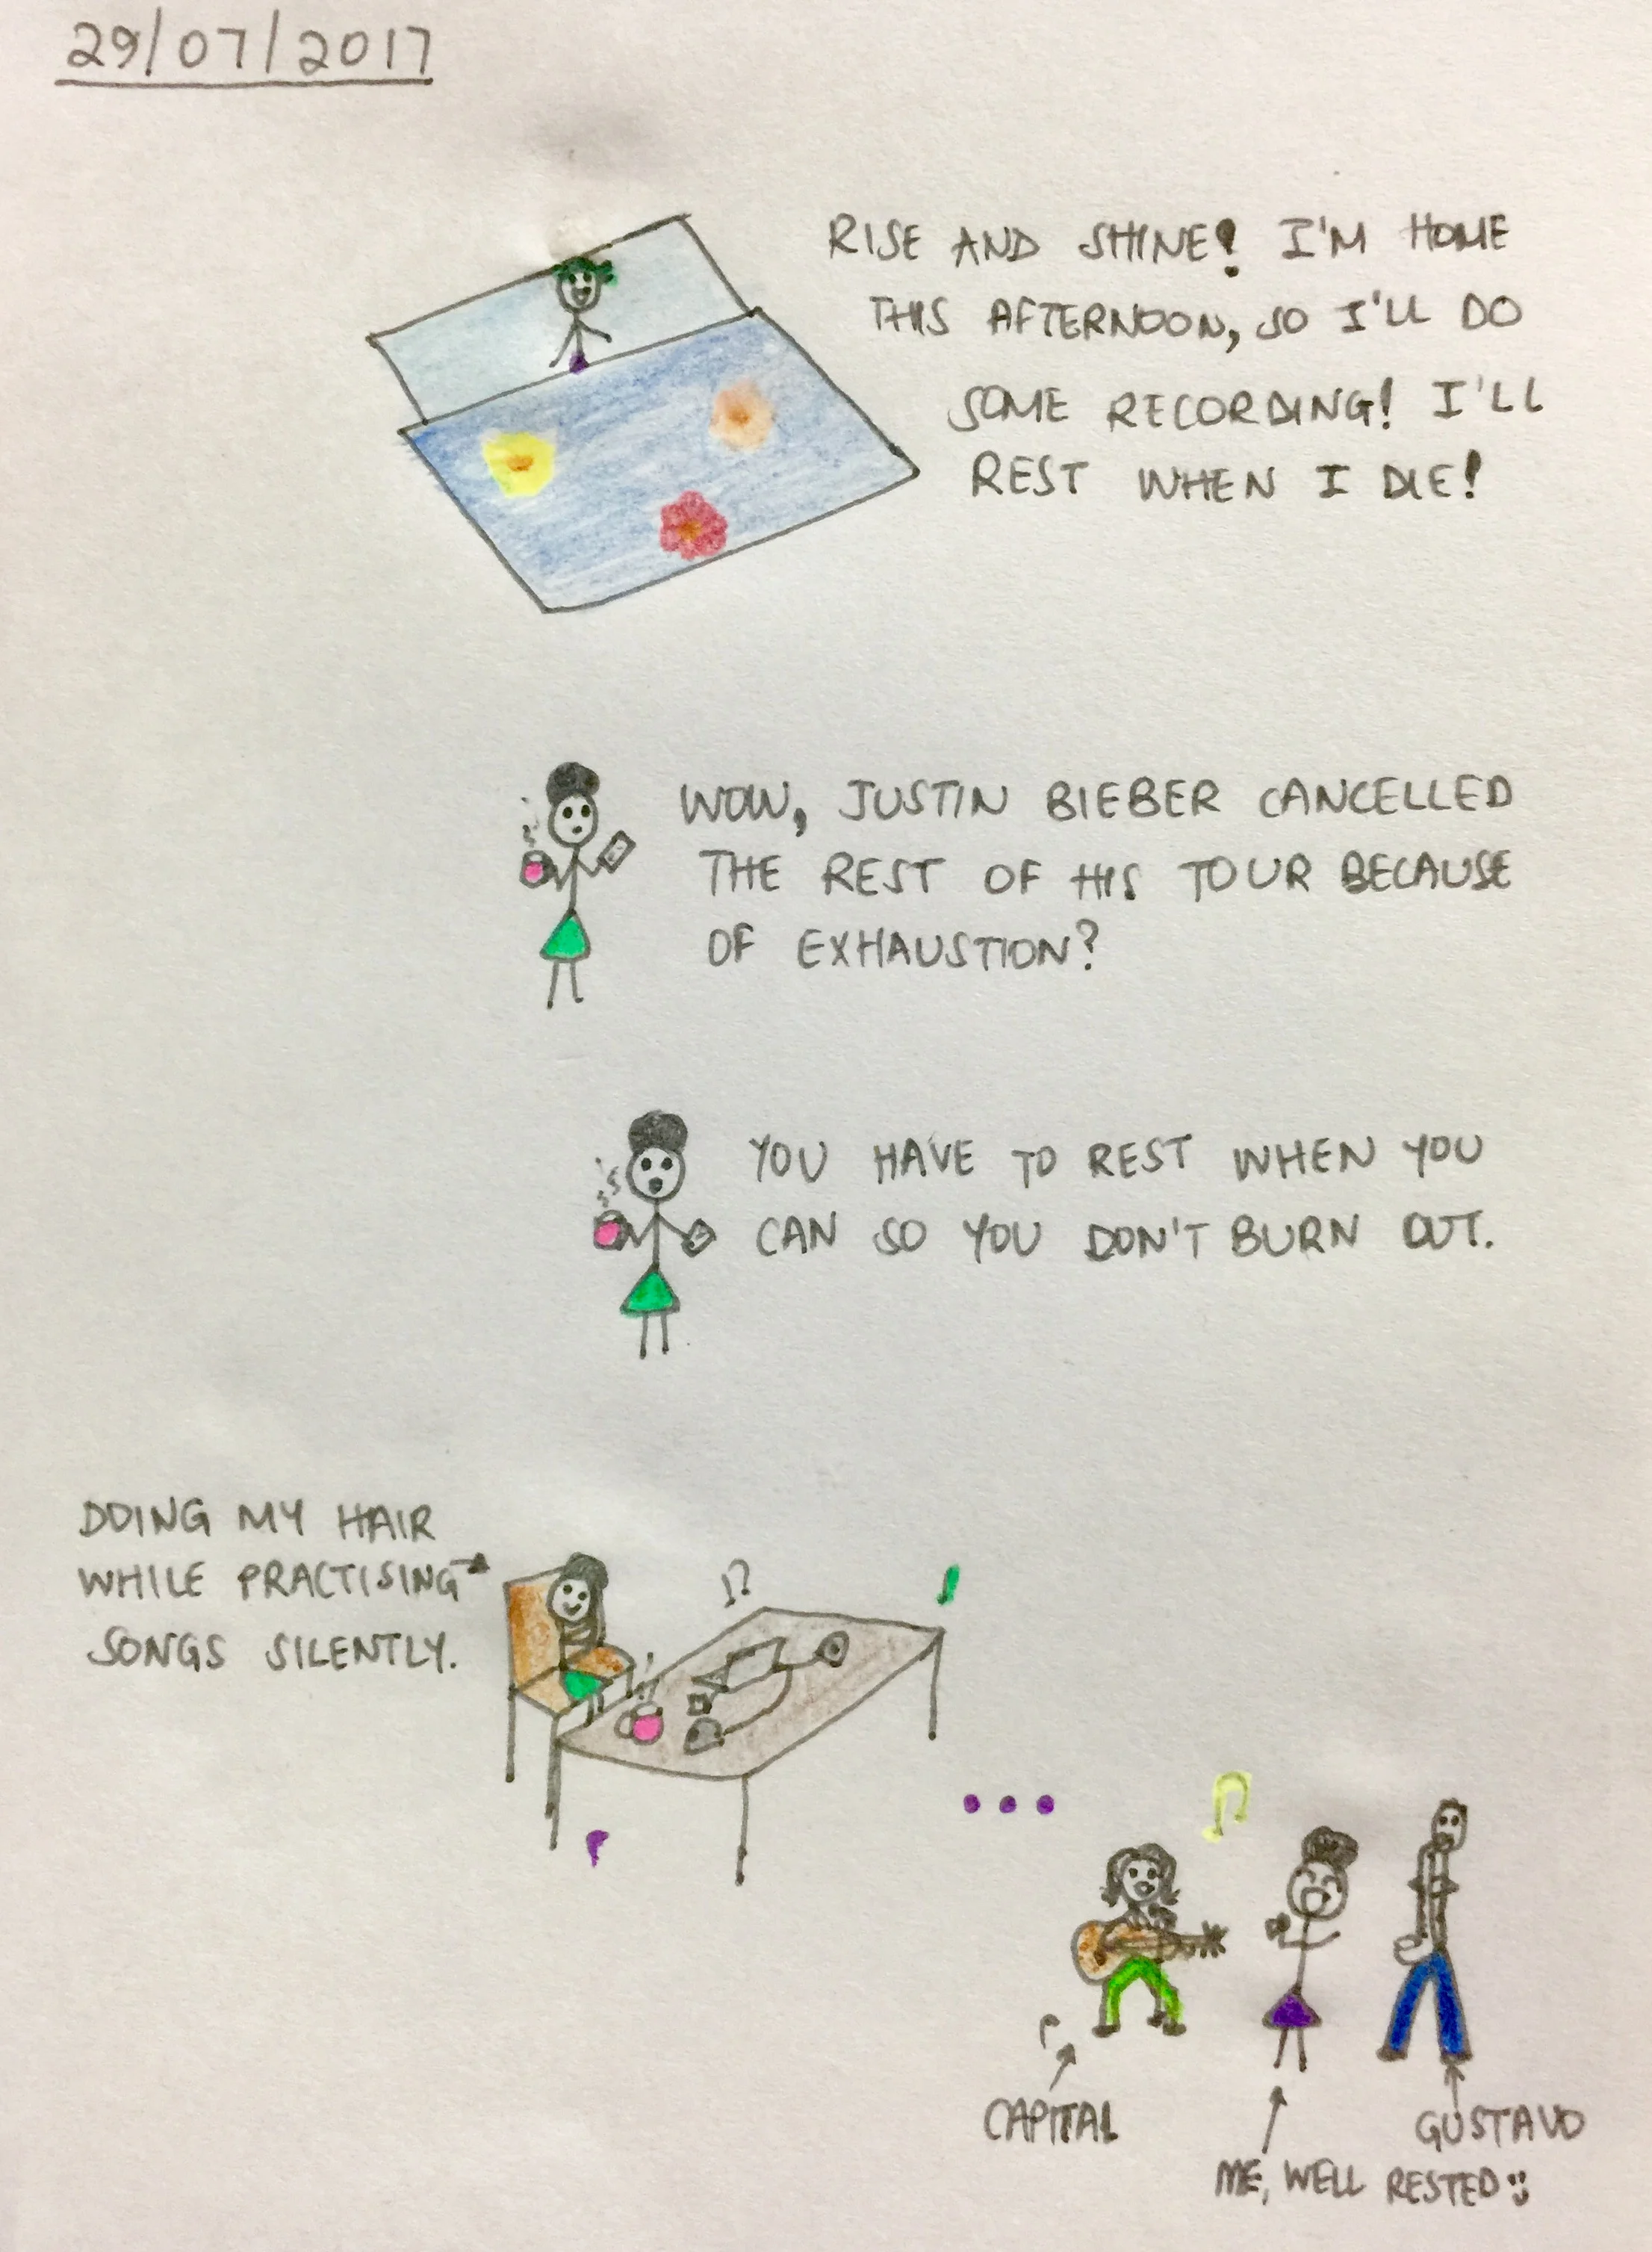 29/07/2017
RISE AND SHINE! I'M HOME
THIS AFTERNOON, SO I'LL DO
SOME RECORDING! I'LL
REST WHEN I DIE!
WOW, JUSTIN BIEBER CANCELLED
THE REST OF HIS TOUR BECAUSE
OF EXHAUSTION?
YOU HAVE TO REST WHEN YOU
CAN SO YOU DON'T BURN OUT.
DOING MY HAIR
WHILE PRACTISING
SONGS SILENTLY.
CAPITAL
GUSTAVO
ME, WELL RESTED